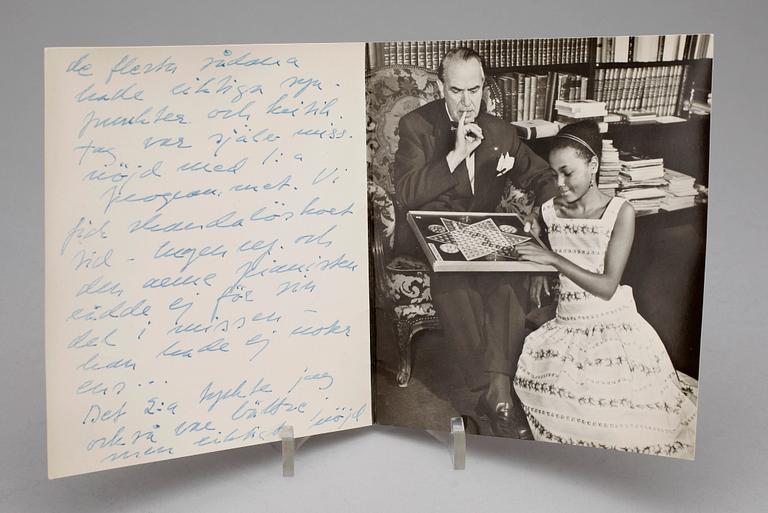 de flesta sådana
hade riktiga syn-
punkter och kritik.
Jag var själv miss-
nöjd med 1:a
programmet. Vi
fick skandalöst kort
tid – ingen rep. och
den arme pianisten
rådde ej för sin
del i missen –
han hade ej noter
ens...
Det 2:a tyckte jag
också var bättre,
men riktigt nöjd